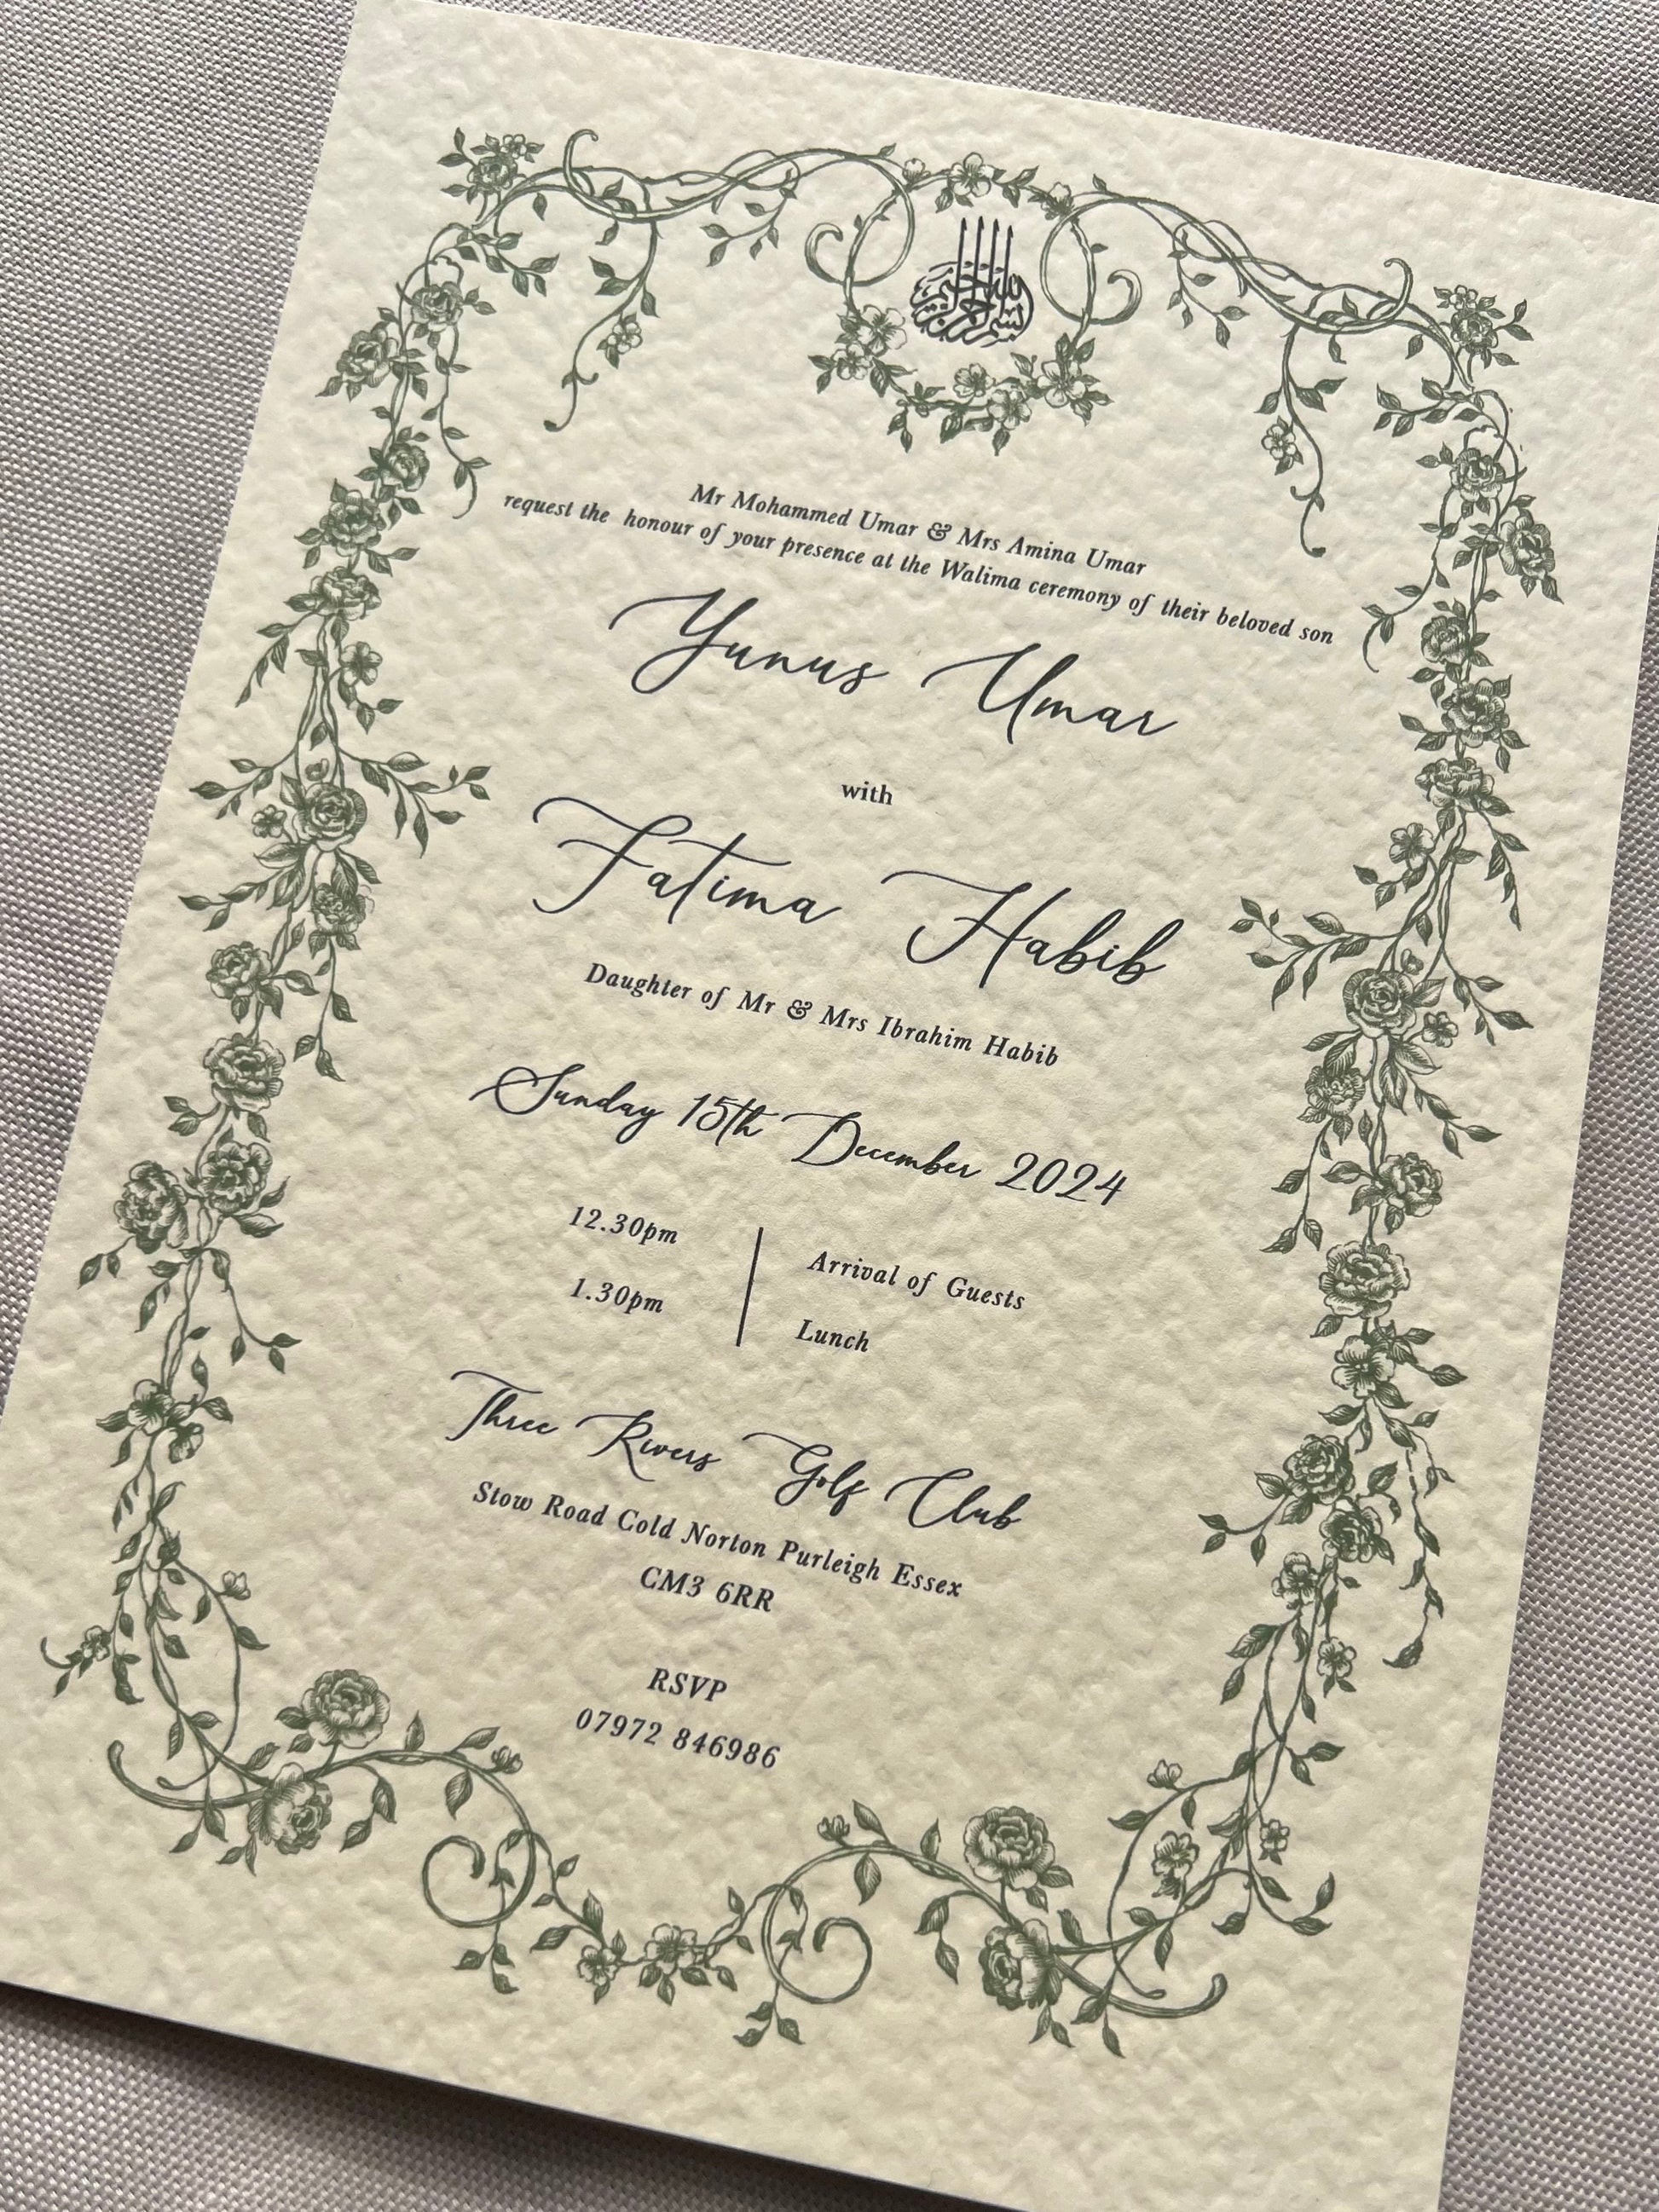 بسم الله الرحمن الرحيم
Mr Mohammed Umar & Mrs Amina Umar
request the honour of your presence at the Walima ceremony of their beloved son
Yunus Umar
with
Fatima Habib
Daughter of Mr & Mrs Ibrahim Habib
Sunday 15th December 2024
12.30pm Arrival of Guests
1.30pm Lunch
Three Rivers Golf Club
Stow Road Cold Norton Purleigh Essex
CM3 6RR
RSVP
07972 846986